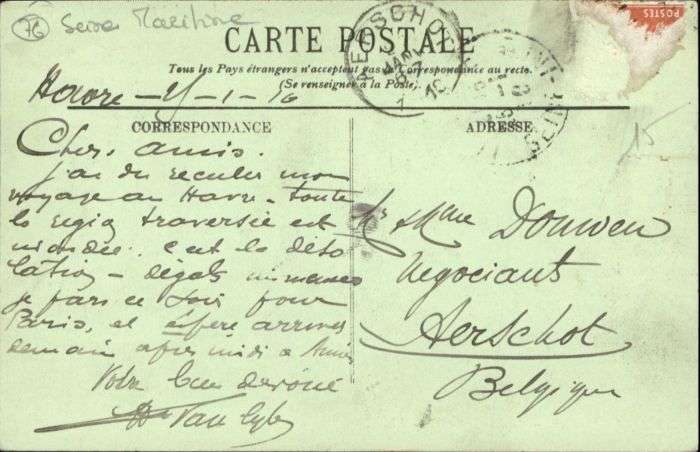 76 Seine Maritime
POSTES
AERSCHOT
JANV
10
CARTE POSTALE
Tous les Pays étrangers n'acceptent pas la Correspondance au recto.
(Se renseigner à la Poste).
Havre
CORRESPONDANCE
Chers amis.
j'ai du reculer mon
voyage au Havre - toute
la region traversée est
inondée. c'est la déso
lation - dégats immenses
je pars ce soir pour
Paris, et éspére arriver
demain apres midi a
Votre bien dévoué
Van
ADRESSE
15
Mr & Mme Douwen
Negociants
Aerschot
Belgique